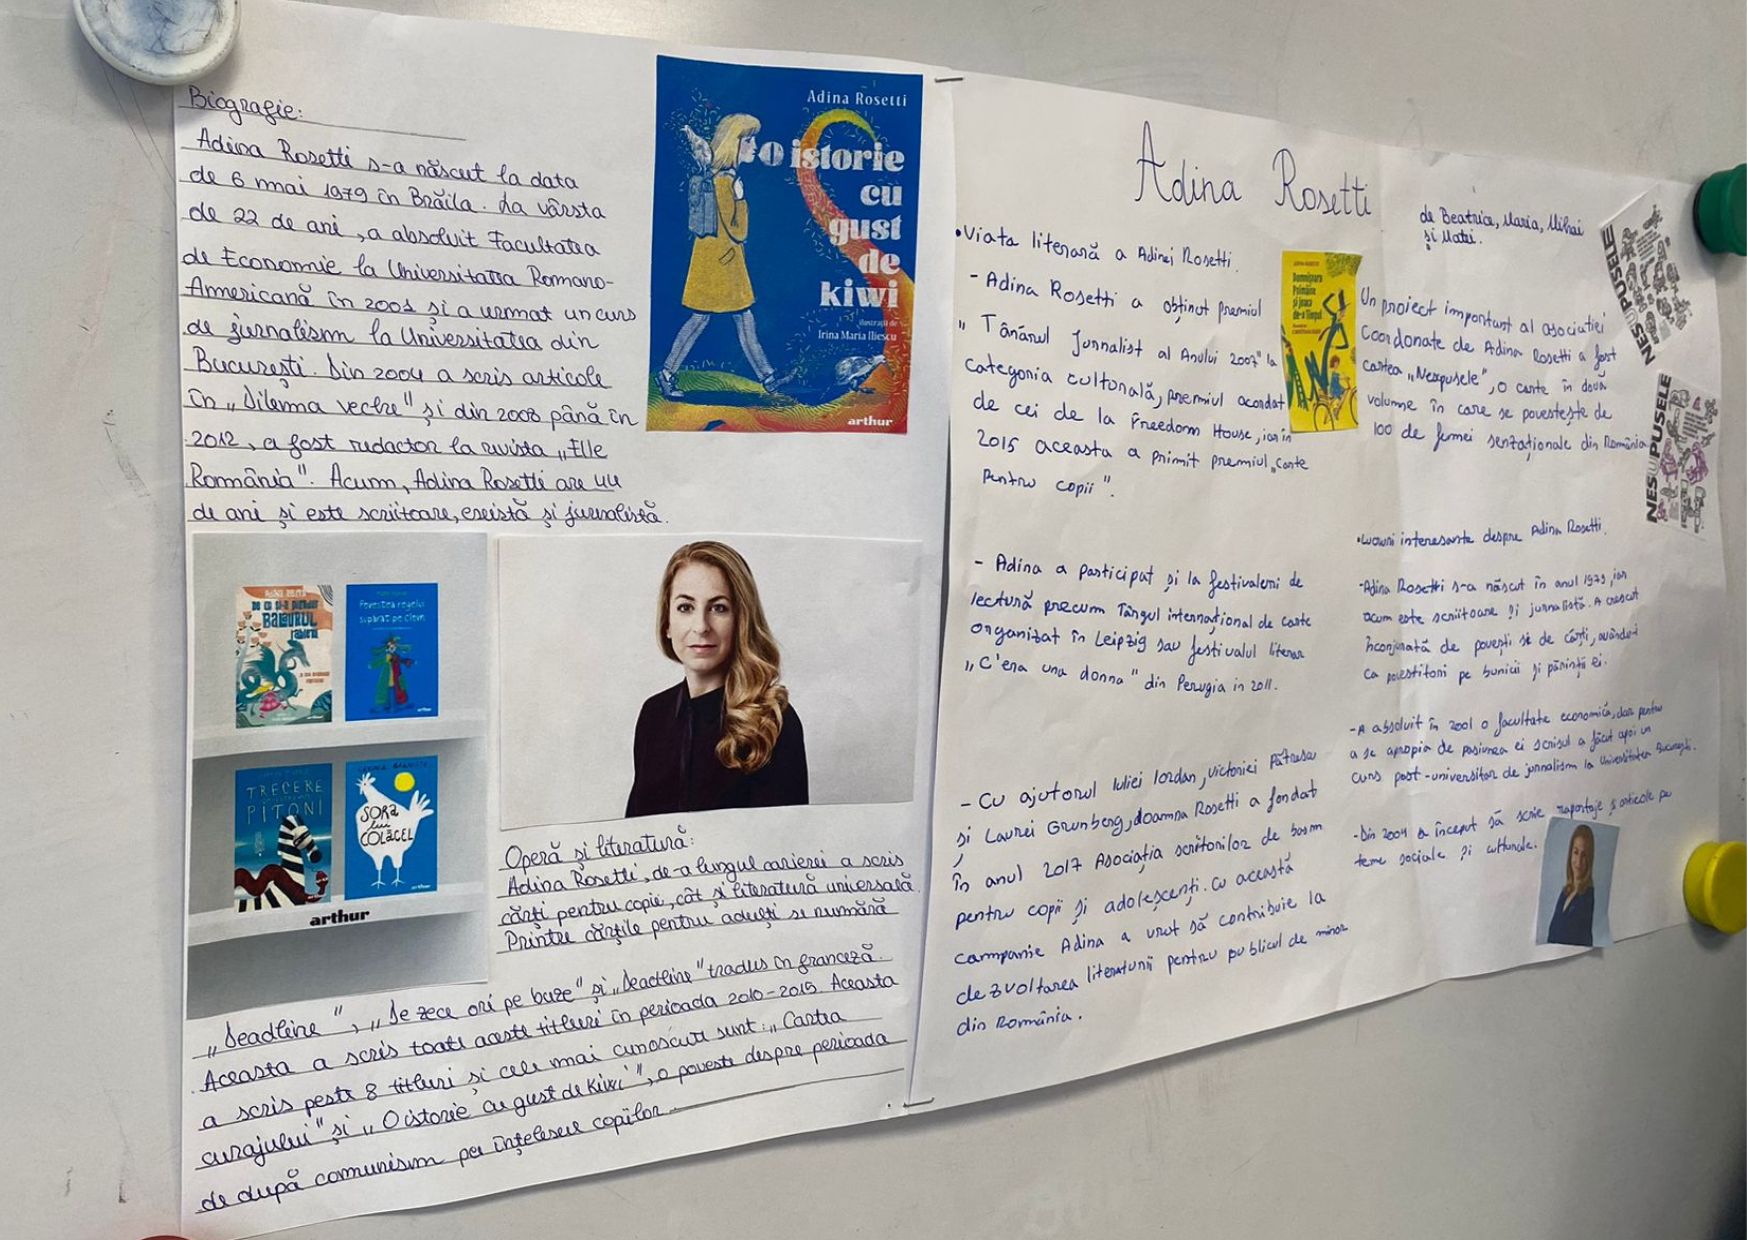 Biografie:
Adina Rosetti s-a născut la data
de 6 mai 1979 în Brăila. La vârsta
de 22 de ani, a absolvit Facultatea
de Economie la Universitatea Romano-
Americană în 2001 și a urmat un curs
de jurnalism la Universitatea din
București. Din 2004 a scris articole
în „Dilema veche" și din 2008 până în
2012, a fost redactor la revista „Elle
România". Acum, Adina Rosetti are 44
de ani și este scriitoare, eseistă și jurnalistă.
Adina Rosetti
O istorie
cu
gust
de
kiwi
ilustrații de
Irina Maria Iliescu
arthur
BALAURUL
Povestea regelui
supărat pe clovni
TRECERE
PITONI
SORA
lui
COLĂCEL
arthur
Operă și literatură:
Adina Rosetti, de-a lungul carierei a scris
cărți pentru copii, cât și literatură universală.
Printre cărțile pentru adulți se numără
„Deadline", „De zece ori pe buze" și „Deadline" tradus în franceză.
Aceasta a scris toate aceste titluri în perioada 2010-2015. Aceasta
a scris peste 8 titluri și cele mai cunoscute sunt: „Cartea
curajului" și „O istorie cu gust de Kiwi", o poveste despre perioada
de după comunism pe înțelesul copiilor.
Adina Rosetti
de Beatrice, Maria, Mihai
și Matei.
•Viata literară a Adinei Rosetti.
- Adina Rosetti a obținut premiul
„Tânărul Jurnalist al Anului 2007" la
categoria culturală, premiul acordat
de cei de la Freedom House, iar în
2015 aceasta a primit premiul „Carte
Pentru copii".
- Adina a participat și la festivaluri de
lectură precum Târgul internațional de carte
organizat în Leipzig sau festivalul literar
„C'era una donna" din Perugia in 2011.
- Cu ajutorul Iuliei Iordan, Victoriei Pătrașcu
și Laurei Grunberg, doamna Rosetti a fondat
în anul 2017 Asociația scriitorilor de basm
pentru copii și adolescenți. Cu această
campanie Adina a vrut să contribuie la
dezvoltarea literaturii pentru publicul de minor
din România.
Domnișoara
Poimâine
și joaca
de-a Timpul
Un proiect important al asociatiei
coordonate de Adina Rosetti a fost
cartea „Nesupusele", o carte în două
volume în care se povestește de
100 de femei senzaționale din România
NESUPUSELE
NESUPUSELE
•Lucruri interesante despre Adina Rosetti.
-Adina Rosetti s-a născut în anul 1979, iar
acum este scriitoare și jurnalistă. A crescut
înconjurată de povești și de cărți, avându-i
ca povestitori pe bunicii și părinții ei.
-A absolvit în 2001 o facultate economică, dar pentru
a se apropia de pasiunea ei scrisul a făcut apoi un
curs post-universitar de jurnalism la Universitatea București.
-Din 2004 a început să scrie reportaje și articole pe
teme sociale și culturale.